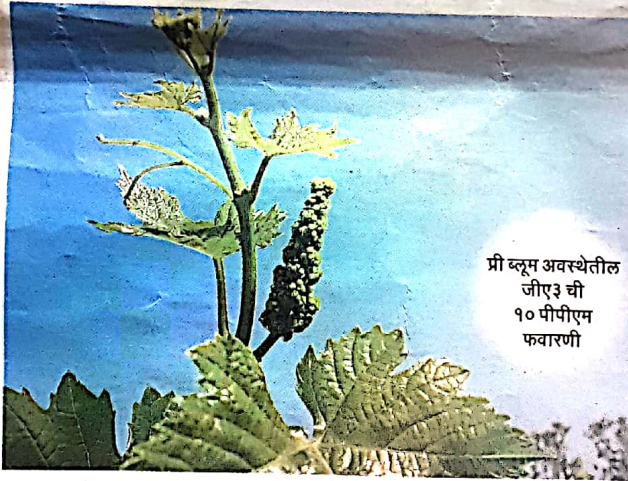 प्री ब्लूम अवस्थेतील
जीए३ ची
१० पीपीएम
फवारणी